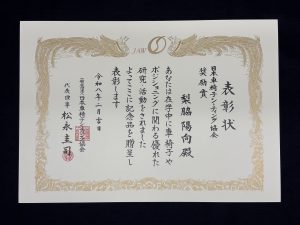 JAW
表彰状
日本車椅子シーティング協会
奨励賞
梨脇陽向殿
あなたは在学中に車椅子や
ポジショニングに関わる優れた
研究活動をされました
よってここに記念品を贈呈し
表彰します
令和八年二月吉日
一般社団法人日本車椅子シーティング協会
代表理事 松永圭司